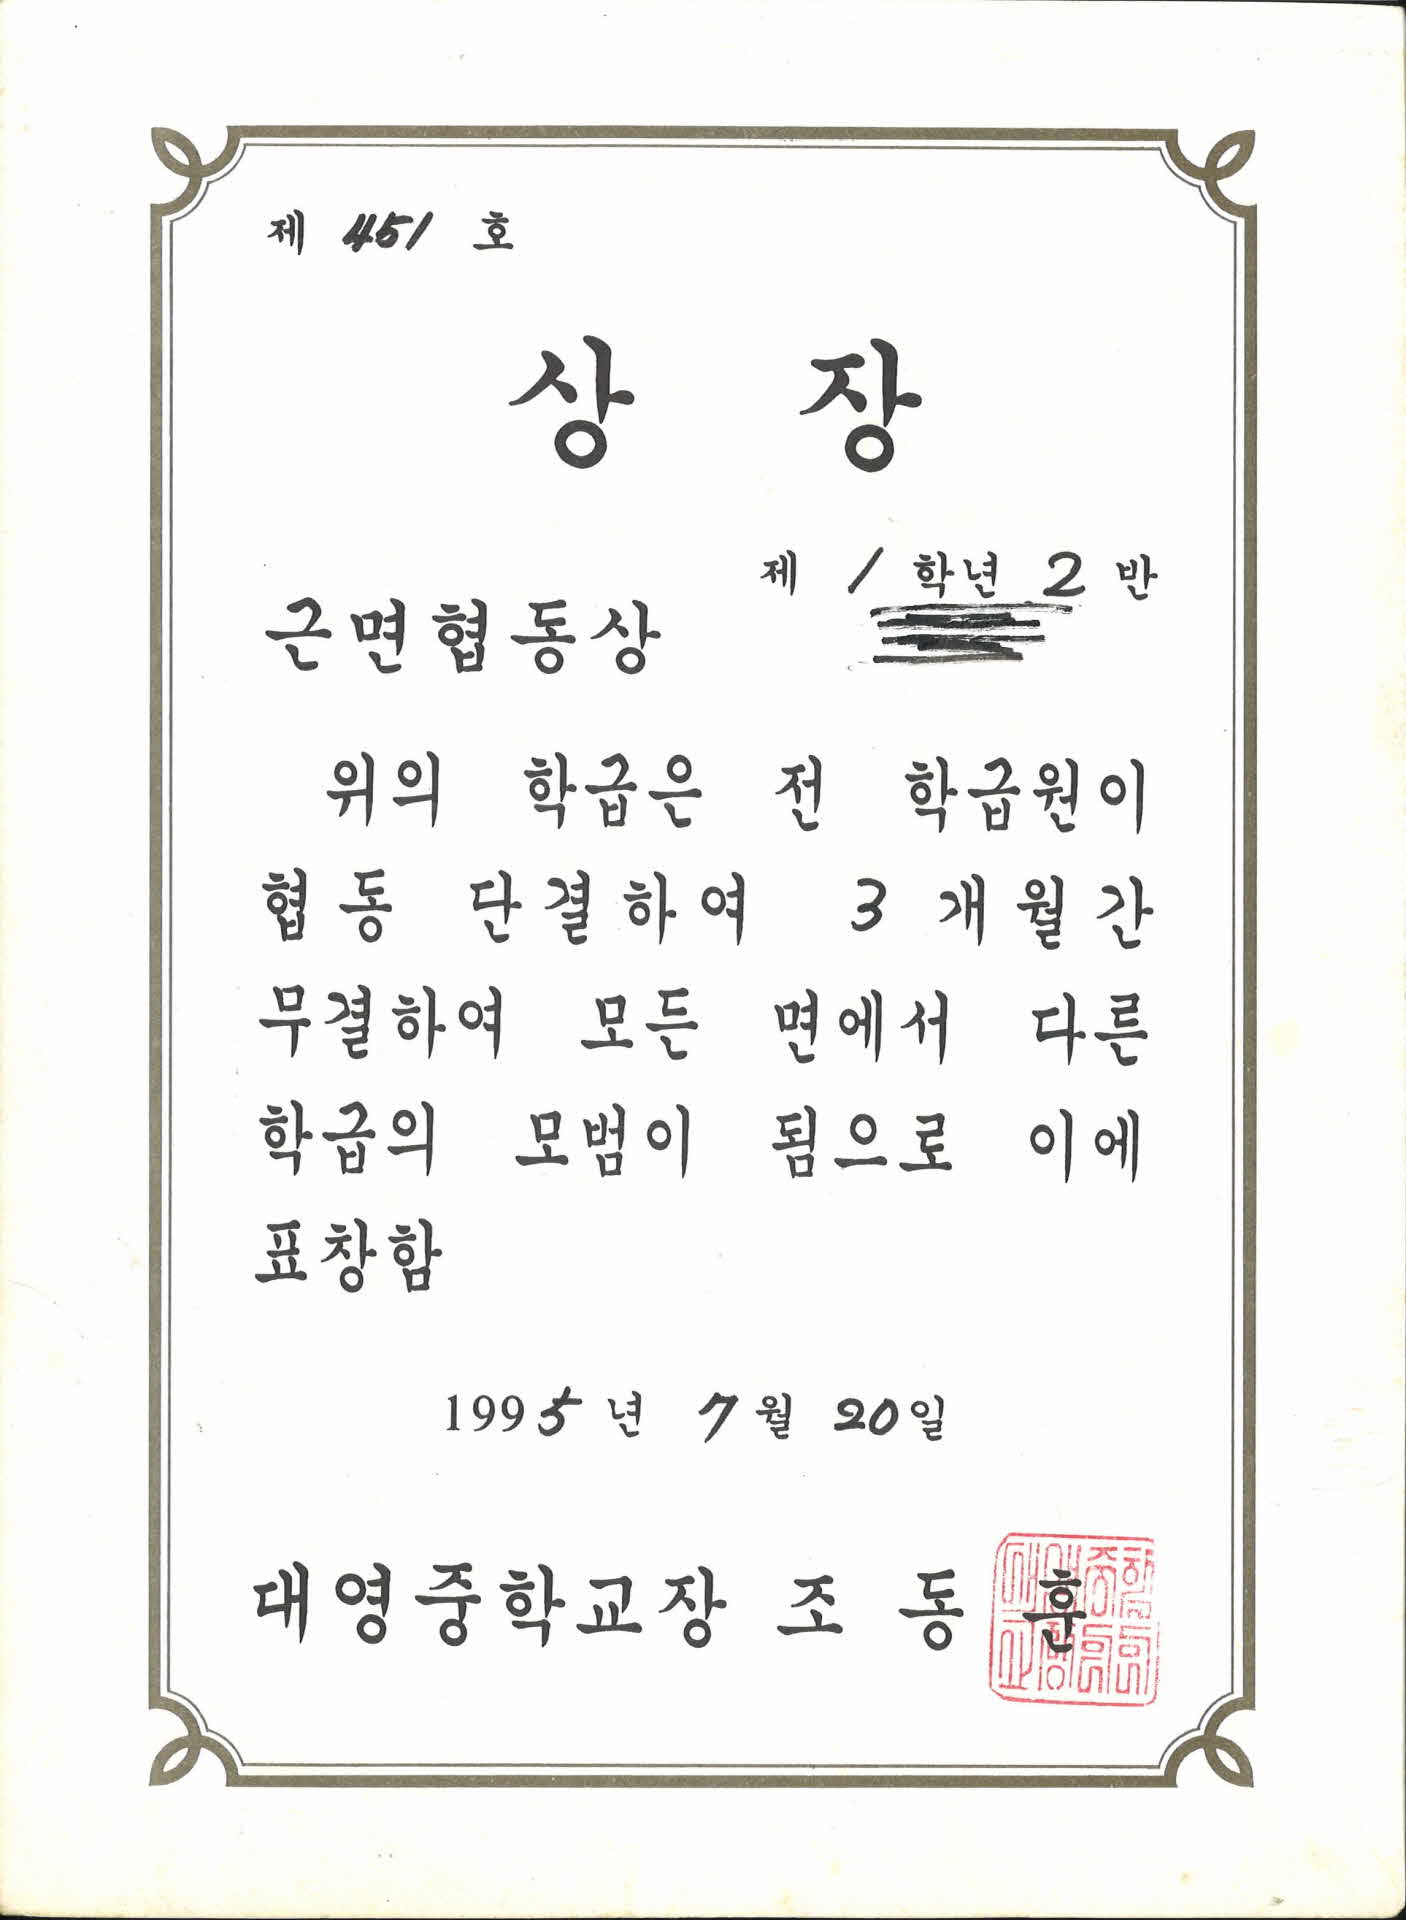 제 451 호
상 장
제 1 학년 2 반
근면협동상
위의 학급은 전 학급원이
협동 단결하여 3 개월간
무결하여 모든 면에서 다른
학급의 모범이 됨으로 이에
표창함
1995 년 7 월 20 일
대영중학교장 조 동 훈